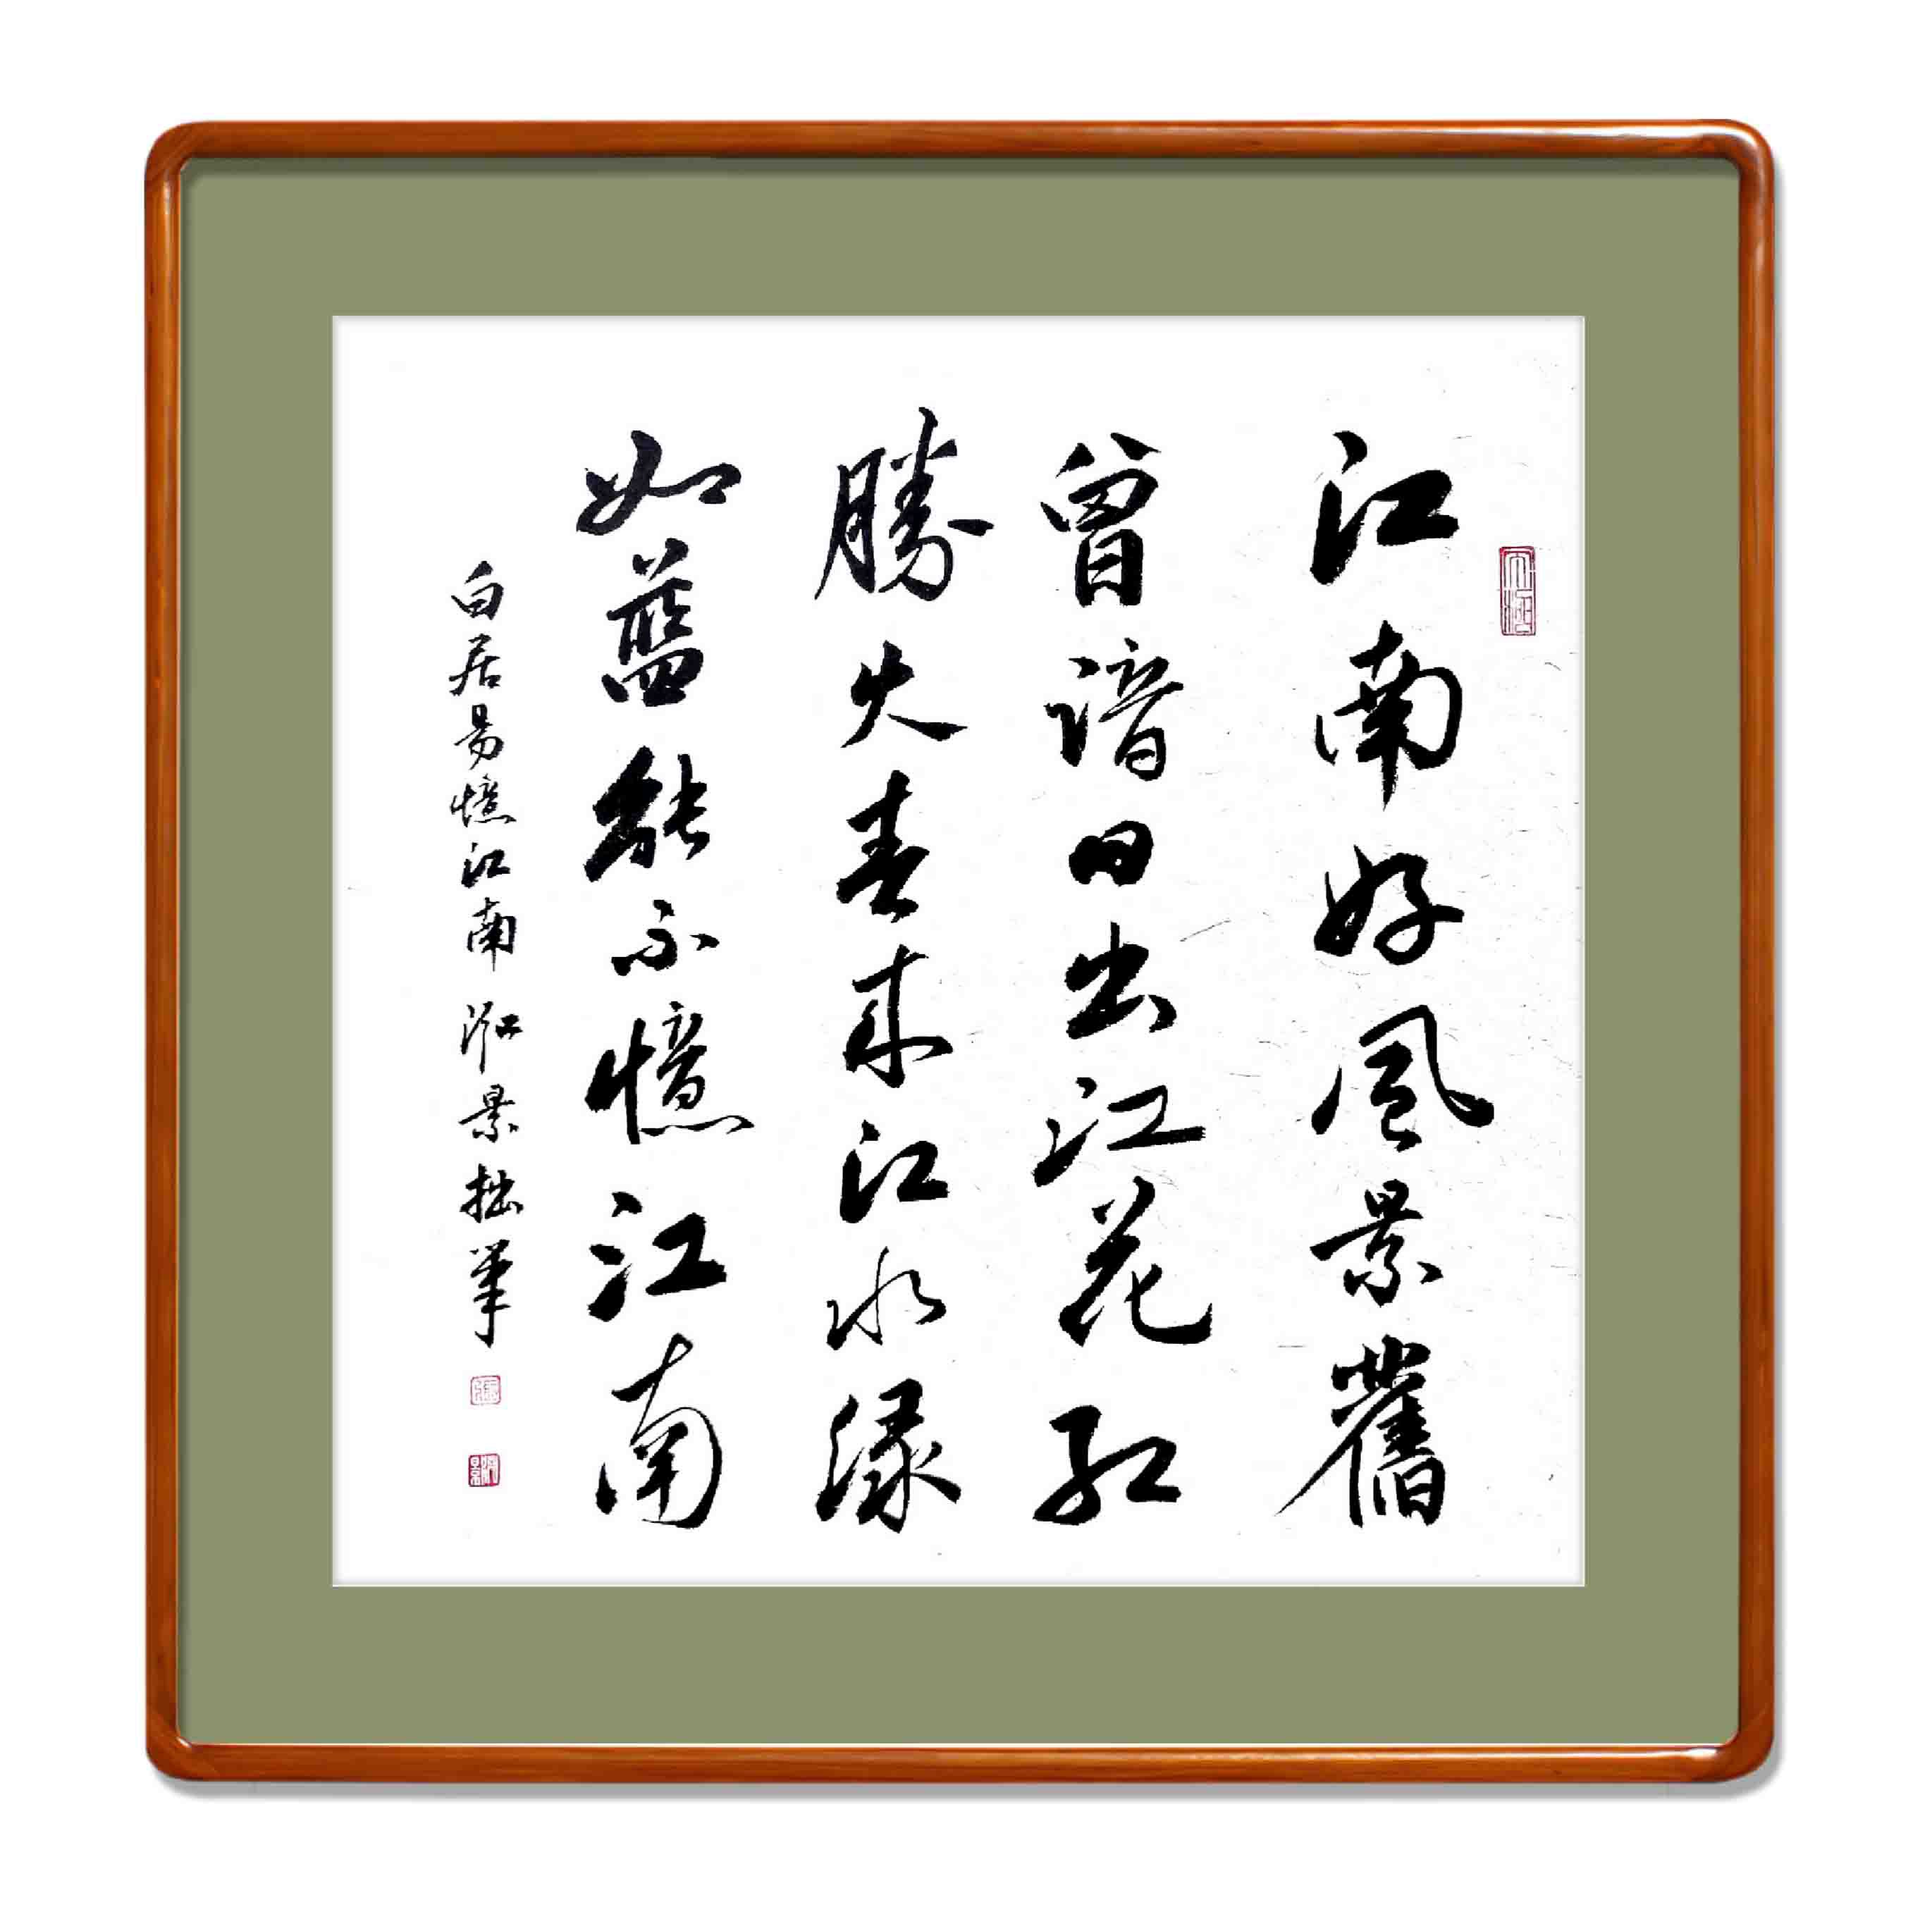 江南好風景舊
曾諳日出江花紅
勝火春來江水綠
如藍能不憶江南
白居易憶江南 泓景拙筆